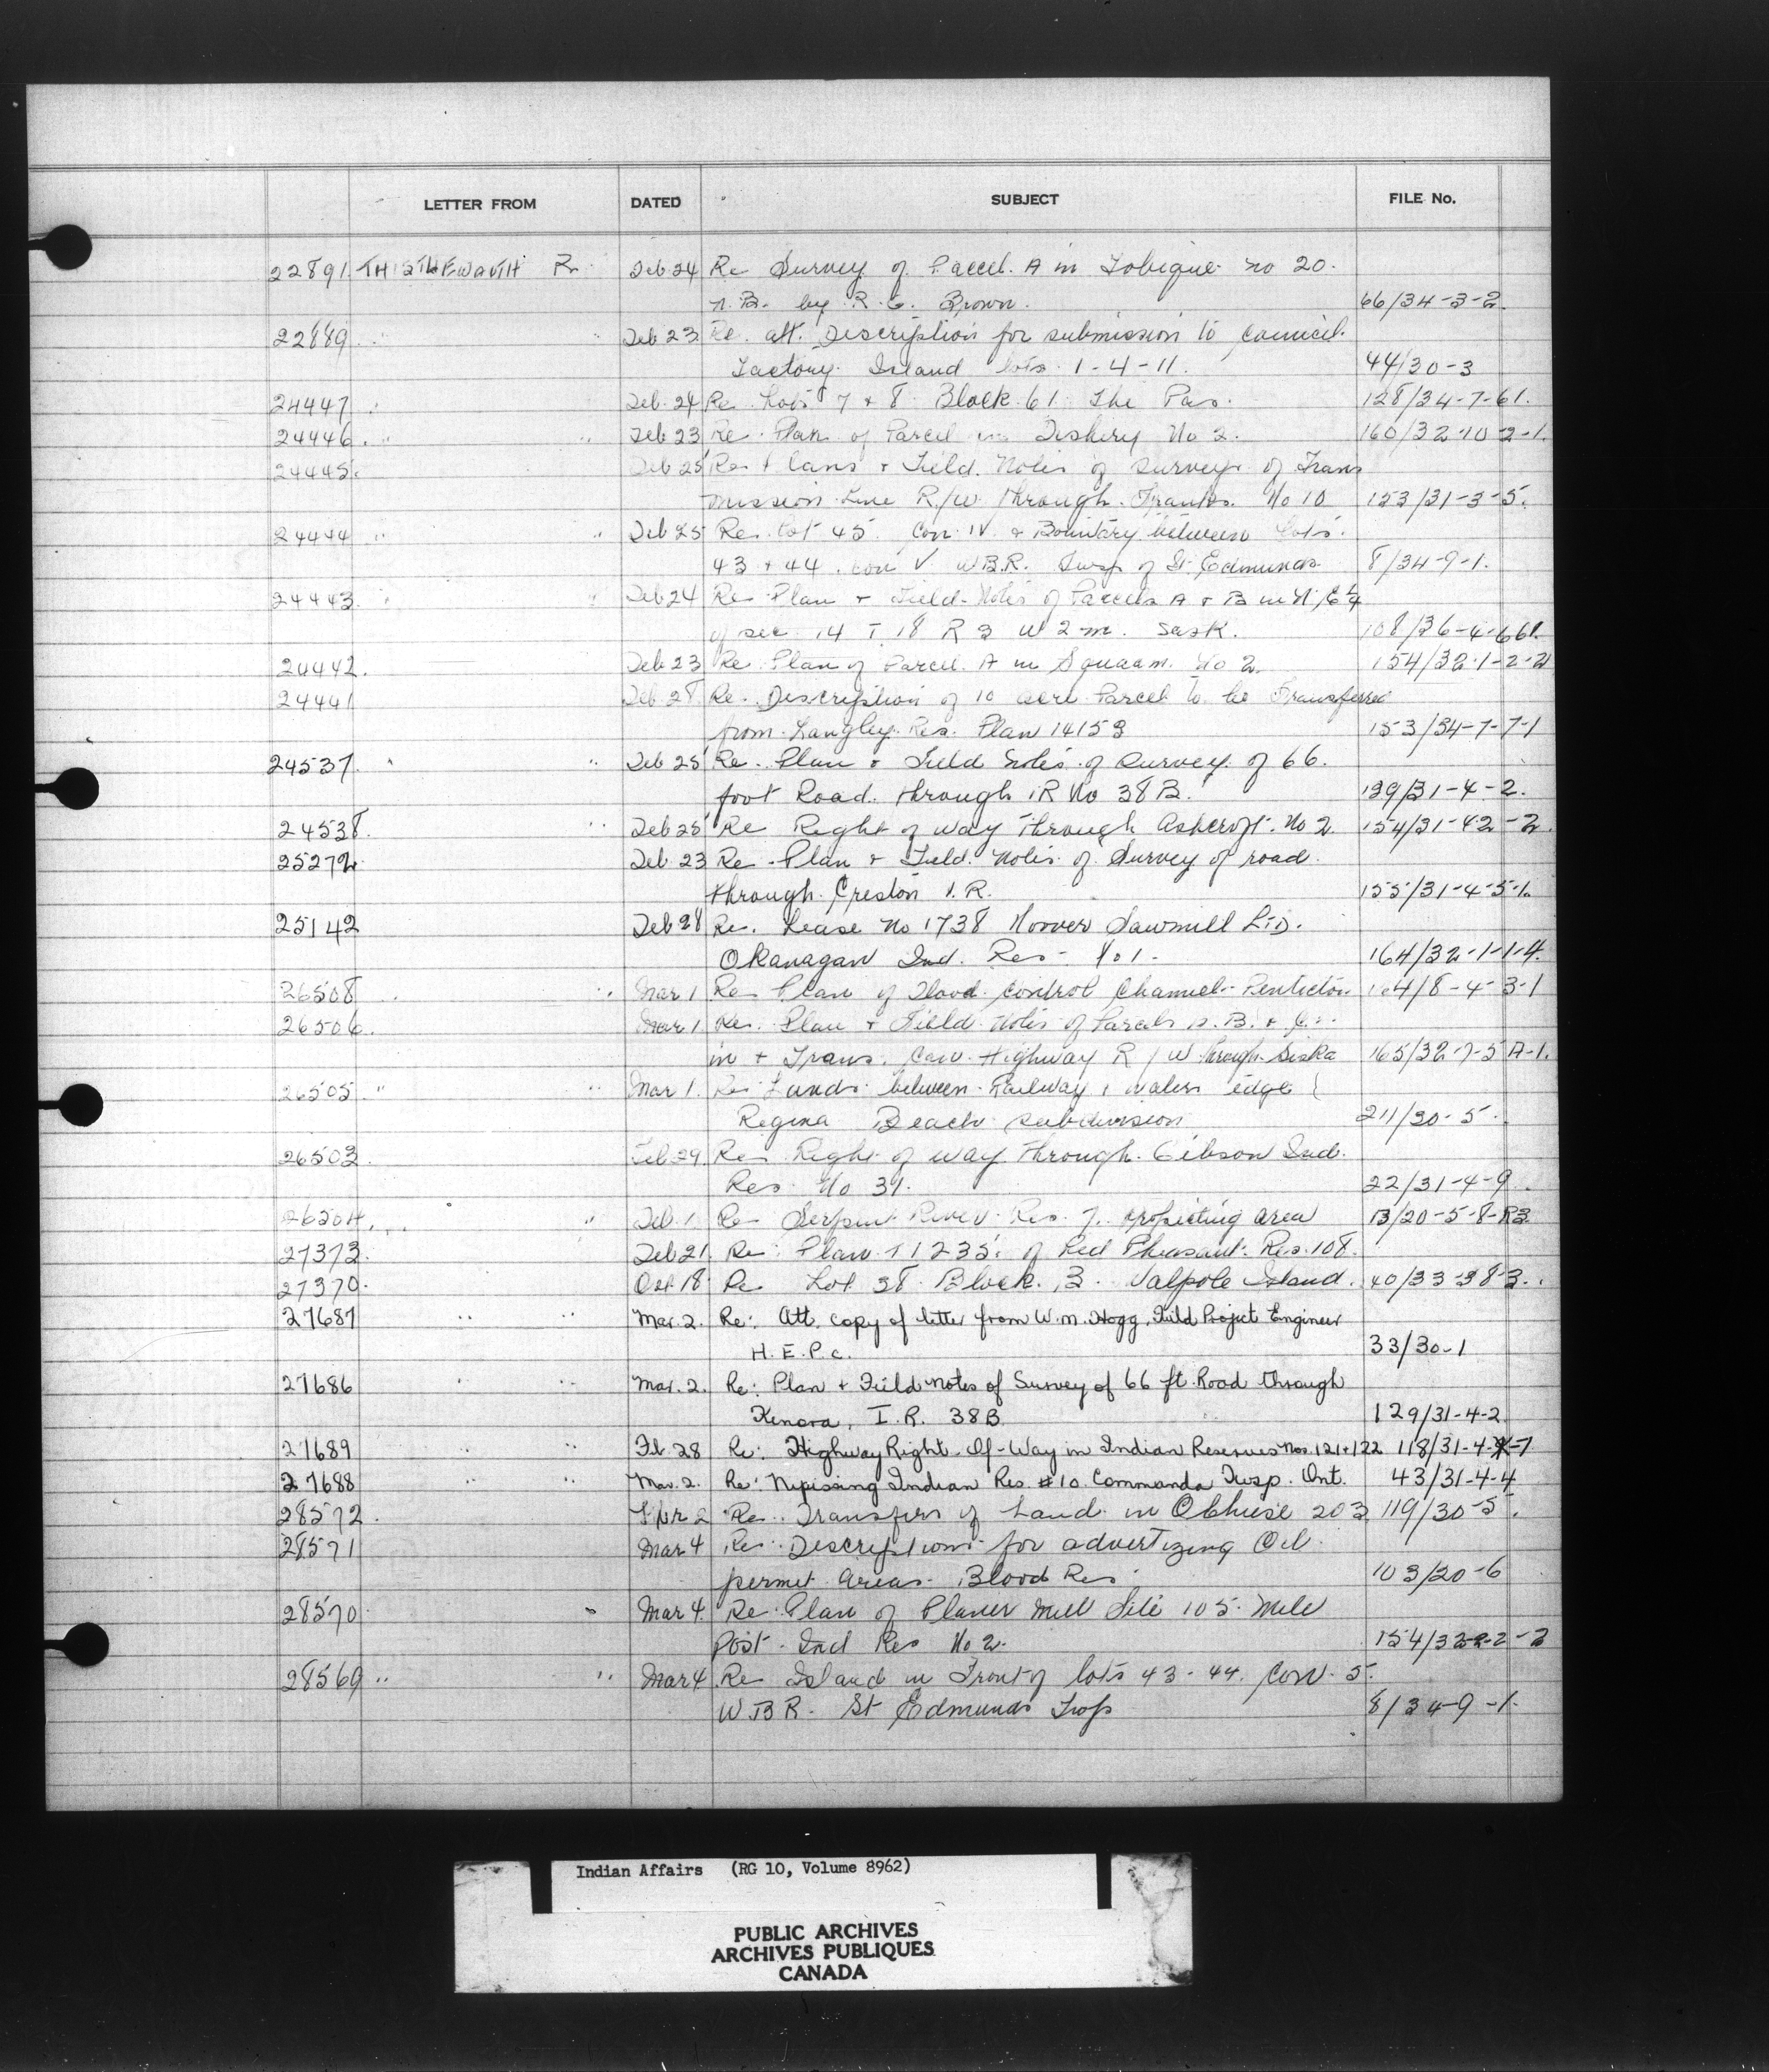 LETTER FROM DATED SUBJECT FILE No.
22891 THISTHEWAITH R. Feb 24 Re Survey of Parcel A in Tobique No 20.
N.B. by R. E. Brown. 66/34-3-2.
22889 " Feb 23 Re. att. Description for submission to Council.
Factory Island lots 1-4-11. 44/30-3
24447 " Feb. 24 Re Lots 7 + 8 Block 61 The Pas. 128/34-7-61.
24446. " " Feb 23 Re Plan of Parcel in Fishery No 2. 160/32-10-2-1.
24445. Feb 25 Re Plans + Field Notes of survey of Trans
mission Line R/W through Franks No 10 153/31-3-5.
24444 " " Feb 25 Re. Lot 45. Con. IV. + Boundary between Lots.
43 + 44. Con V W.B.R. Twsp of St. Edmunds 8/34-9-1.
24443. " " Feb 24 Re Plan + Field Notes of Parcels A + B in N.E¼
of sec 14 T 18 R 3 W 2 m. Sask. 108/36-4-661.
24442. Feb 23 Re Plan of Parcel A in Squaam No 2. 154/32-1-2-2
24441 Feb 28 Re. Description of 10 acre Parcel to be Transferred
from Langley Res. Plan 14153 153/34-7-7-1
24537. " " Feb 25 Re. Plan + Field Notes of Survey of 66.
foot Road through IR No 38B. 129/31-4-2.
24538. " Feb 25 Re Right of way through Ashcroft No 2. 154/31-42-2.
25272 Feb 23 Re Plan + Field Notes of Survey of road
through Creston I.R. 155/31-4-5-1.
25142 Feb 28 Re. Lease No 1738 Hoover Sawmill LTD.
Okanagan Ind. Res. No 1. 164/32-1-1-4.
26508 " " Mar 1 Re Plan of Flood Control Channel Penticton 164/8-4-3-1
26506. Mar 1 Re. Plan + Field Notes of Parcels A. B. + C.
in + Trans. Can. Highway R/W through Siska 165/32-7-5 A-1.
26505. " " Mar 1. Re Lands between Railway + waters edge
Regina Beach subdivision 211/30-5.
26503. Feb 29 Re Right of way through Gibson Ind.
Res. No 31. 22/31-4-9
26504. " " Feb. 1 Re Serpent River Res 7. prospecting area 13/20-5-8-R3
27373. Feb 21. Re: Plan T1235. of Red Pheasant Res. 108.
27370. Oct 18 Re Lot 38 Block B. Walpole Island. 40/33-38-3.
27687 " " Mar. 2. Re: Att. copy of letter from W.M. Hogg, Field Project Engineer
H.E.P.C. 33/30-1
27686 " " Mar. 2. Re: Plan + Field Notes of Survey of 66 ft Road through
Kenora, I.R. 38B 129/31-4-2
27689 " " Fb. 28 Re: Highway Right-Of-Way in Indian Reserves Nos. 121+122 118/31-4-7
27688 " " Mar. 2. Re: Nipissing Indian Res. #10 Commanda Twsp. Ont. 43/31-4-4
28572. 2 Re. Transfers of Land in Ochiese 203 119/30-5.
28571 Mar 4 Re: Descriptions for advertizing Oil
permit areas. Blood Res. 103/20-6
28570 " Mar 4. Re: Plan of Planer Mill Site 105 Mile
Post Ind Res No 2. 154/32-2-2-2
28569 " " Mar 4 Re Island in Front of lots 43-44. Con. 5.
W.B.R. St Edmunds Twp 8/34-9-1.
Indian Affairs (RG 10, Volume 8962)
PUBLIC ARCHIVES
ARCHIVES PUBLIQUES
CANADA